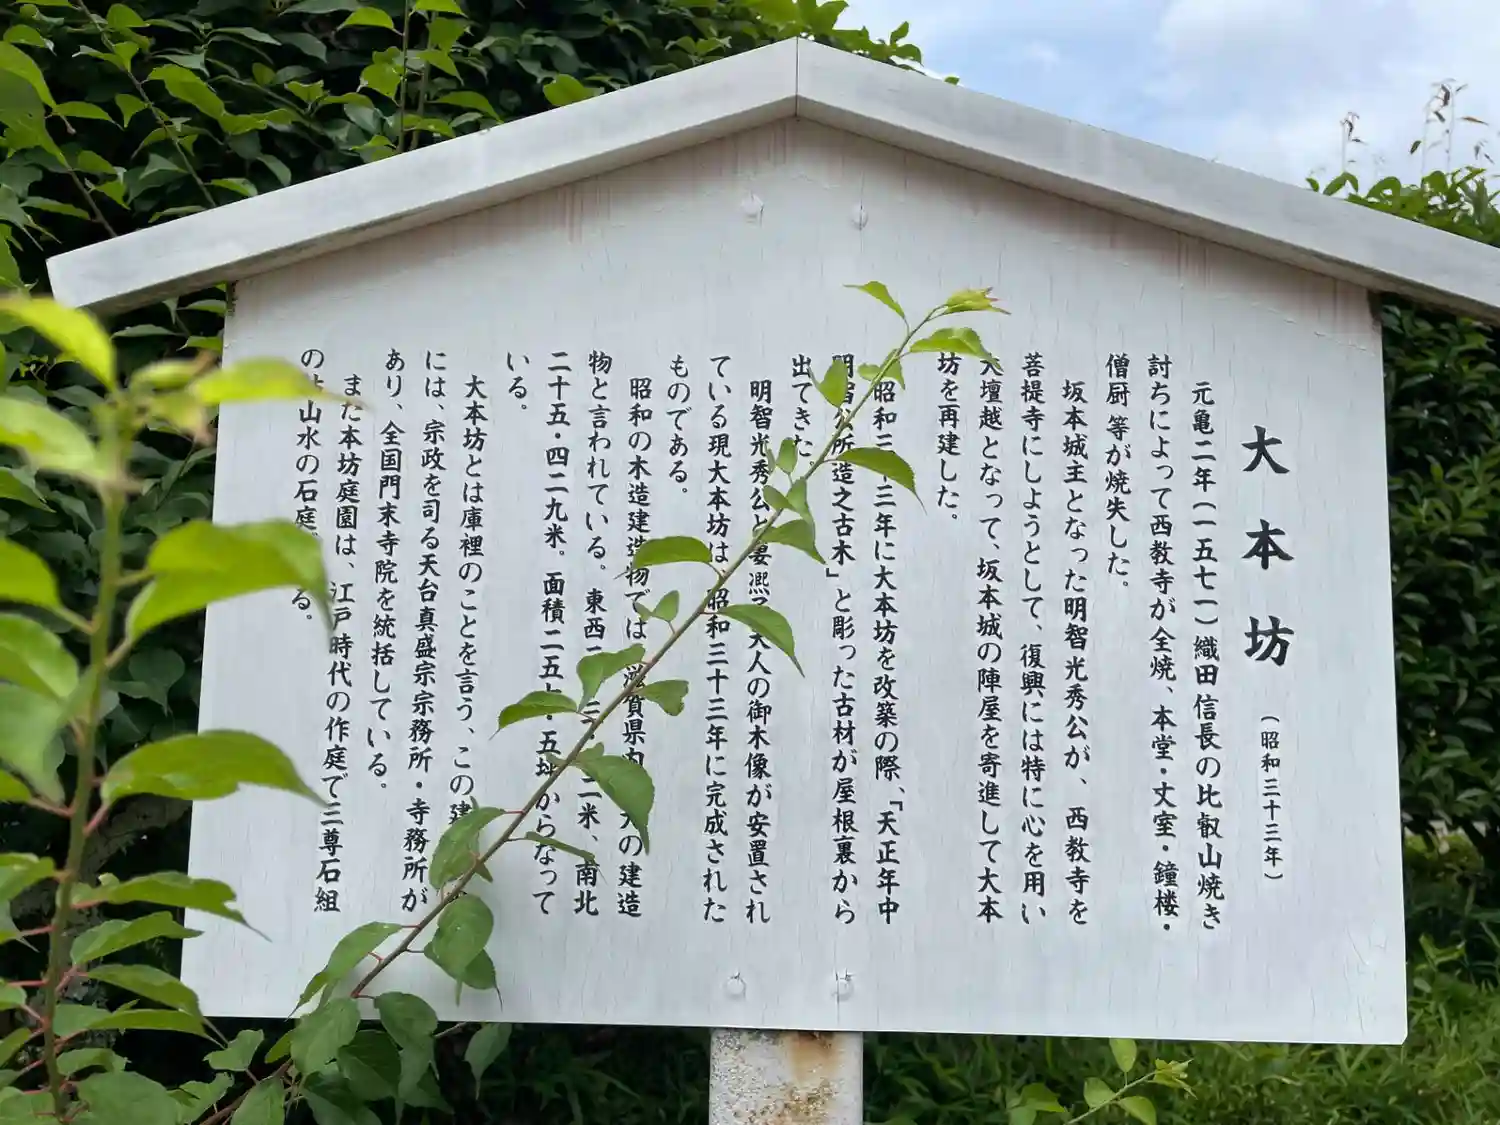 大本坊（昭和三十三年）
元亀二年（一五七一）織田信長の比叡山焼き
討ちによって西教寺が全焼、本堂・丈室・鐘楼・
僧厨等が焼失した。
坂本城主となった明智光秀公が、西教寺を
菩提寺にしようとして、復興には特に心を用い
大壇越となって、坂本城の陣屋を寄進して大本
坊を再建した。
昭和三十三年に大本坊を改築の際、「天正年中
明智公所造之古木」と彫った古材が屋根裏から
出てきた
明智光秀公と妻凞子夫人の御木像が安置され
ている現大本坊は、昭和三十三年に完成された
ものである。
昭和の木造建造物では 滋賀県内 大の建造
物と言われている。東西二 三 二米、南北
二十五・四二九米。面積二五七・五坪からなって
いる。
大本坊とは庫裡のことを言う、この建
には、宗政を司る天台真盛宗宗務所・寺務所が
あり、全国門末寺院を統括している。
また本坊庭園は、江戸時代の作庭で三尊石組
の 山水の石庭 る。